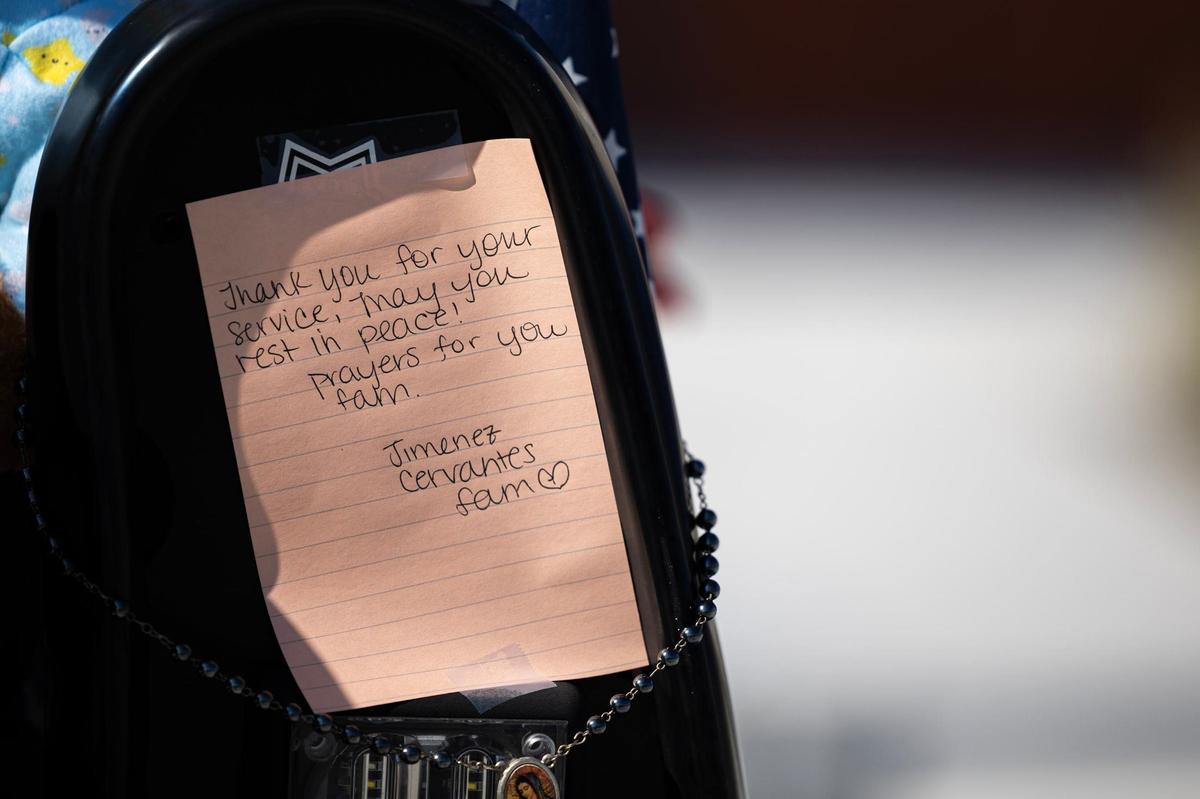 Thank you for your
service, may you
rest in peace!
prayers for you
fam.
Jimenez
Cervantes
fam